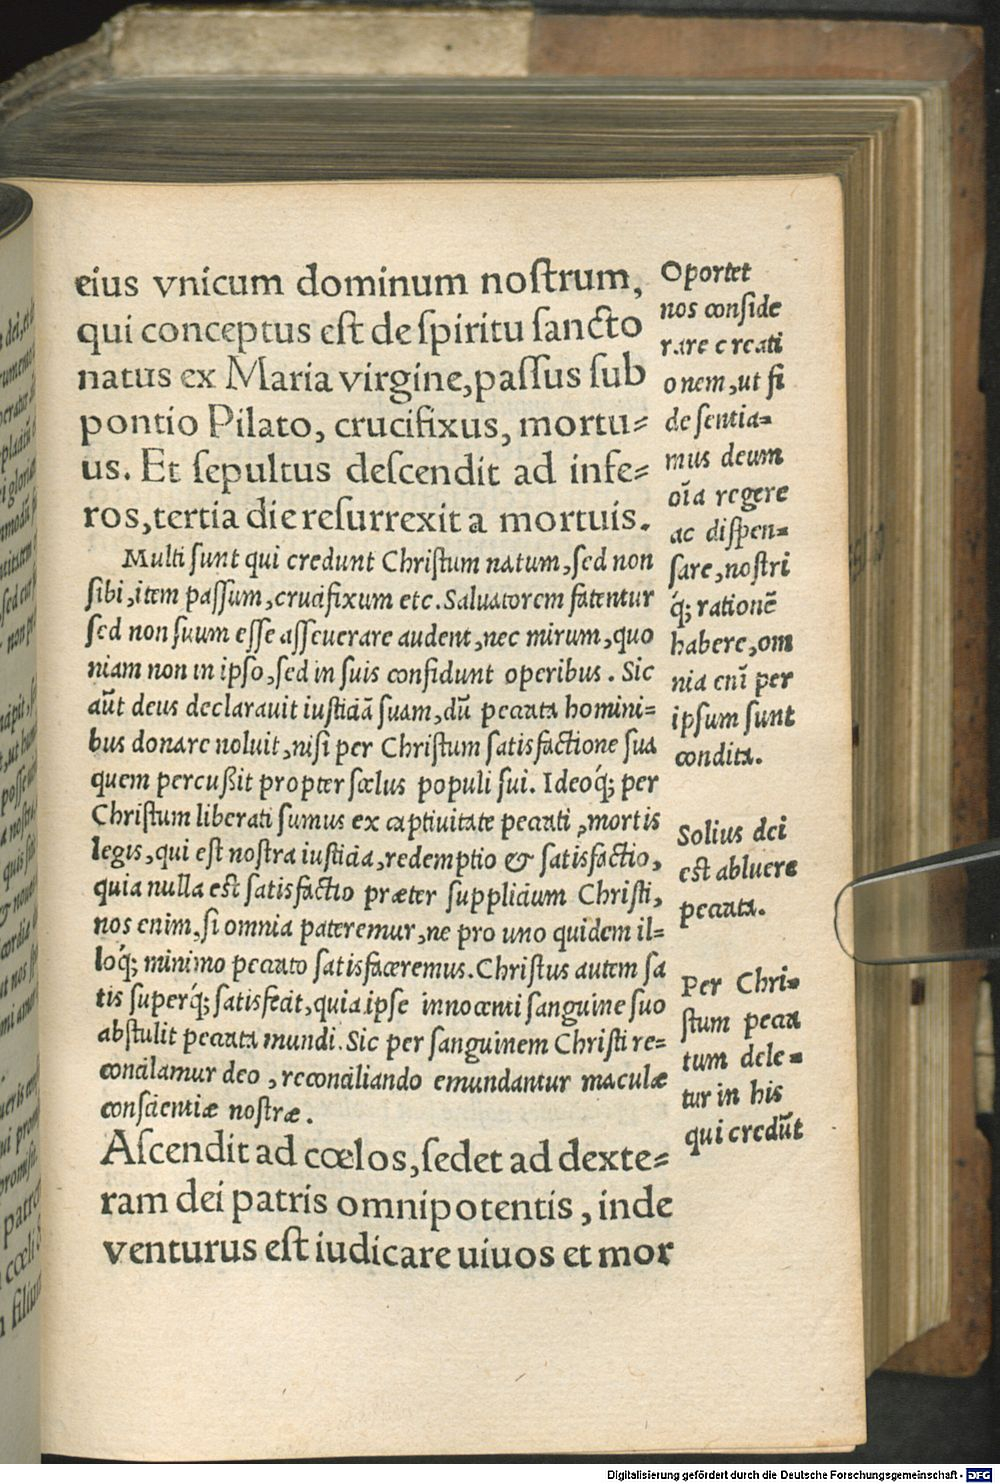 eius vnicum dominum noſtrum,
qui conceptus eſt de ſpiritu ſancto
natus ex Maria virgine, paſſus ſub
pontio Pilato, crucifixus, mortu⸗
us. Et ſepultus deſcendit ad infe⸗
ros, tertia die reſurrexit a mortuis.
Multi ſunt qui credunt Chriſtum natum, ſed non
ſibi, item paſſum, crucifixum etc. Saluatorem fatentur
ſed non ſuum eſſe aſſeuerare audent, nec mirum, quo
niam non in ipſo, ſed in ſuis confidunt operibus. Sic
aūt deus declarauit iuſticiā ſuam, dū peccata homini⸗
bus donare noluit, niſi per Chriſtum ſatisfactione ſua
quem percußit propter ſcelus populi ſui. Ideoq́; per
Chriſtum liberati ſumus ex captiuitate peccati, mortis
legis, qui eſt noſtra iuſticia, redemptio & ſatisfactio,
quia nulla eſt ſatisfactio præter ſupplicium Chriſti,
nos enim, ſi omnia pateremur, ne pro uno quidem il⸗
loq́; minimo peccato ſatisfaceremus. Chriſtus autem ſa
tis ſuperq́; ſatisfecit, quia ipſe innocenti ſanguine ſuo
abſtulit peccata mundi. Sic per ſanguinem Chriſti re⸗
conciliamur deo, reconciliando emundantur maculæ
conſcientiæ noſtræ.
Aſcendit ad cœlos, ſedet ad dexte⸗
ram dei patris omnipotentis, inde
venturus eſt iudicare uiuos et mor
Oportet
nos conſide
rare creati
onem, ut fi
de ſentia⸗
mus deum
oīa regere
ac diſpen⸗
ſare, noſtri
q́; rationē
habere, om
nia enī per
ipſum ſunt
condita.
Solius dei
eſt abluere
peccata.
Per Chri⸗
ſtum pecca
tum dele⸗
tur in his
qui credūt
Digitalisierung gefördert durch die Deutsche Forschungsgemeinschaft - DFG